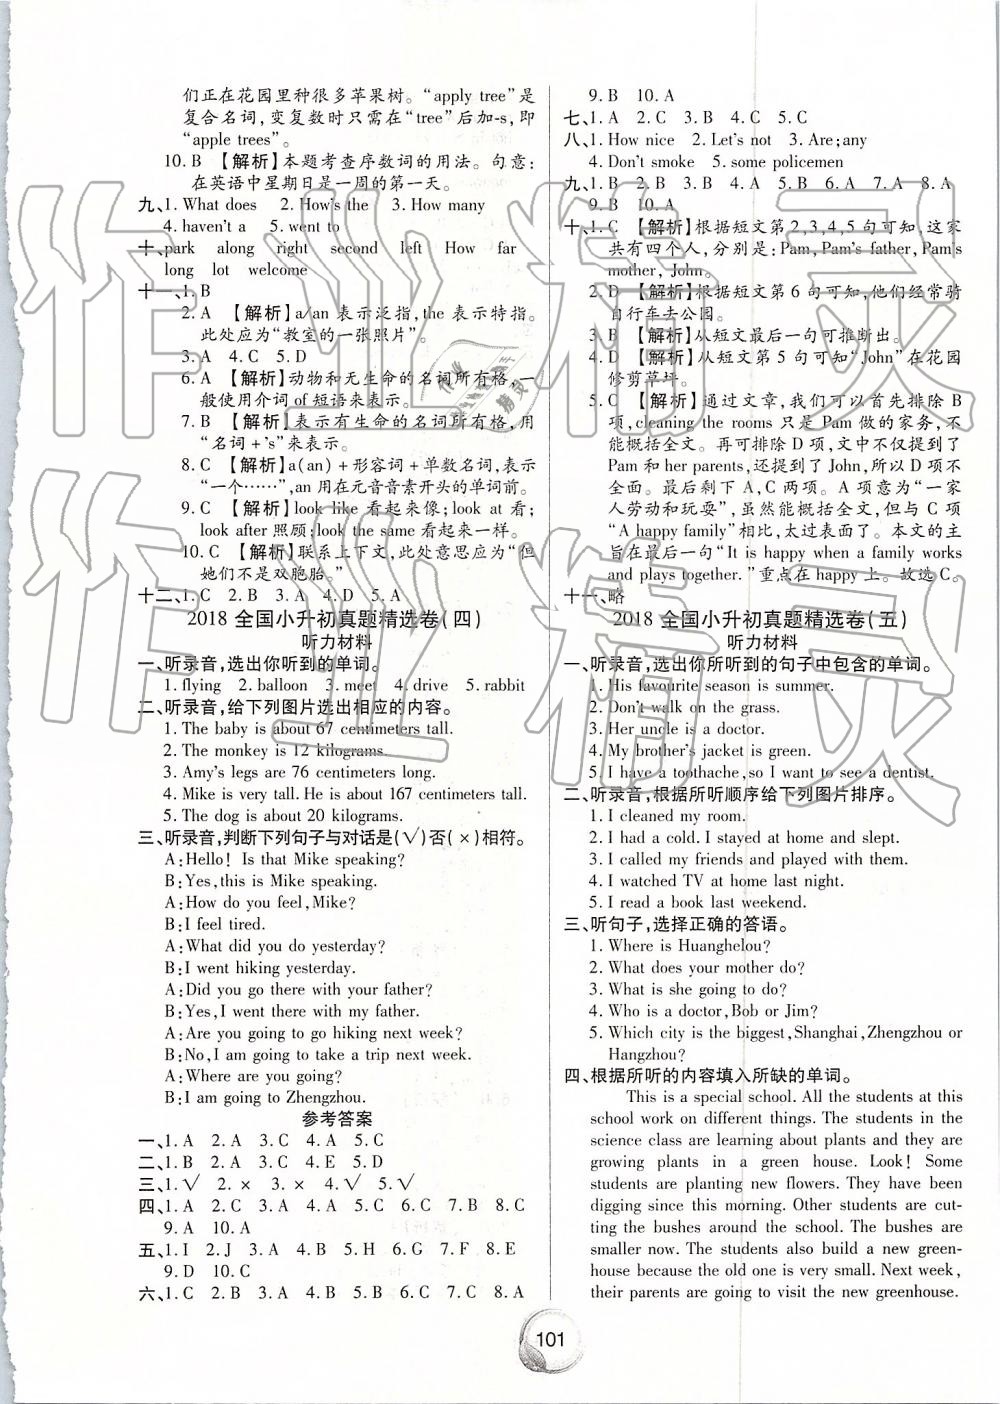 们正在花园里种很多苹果树。“apply tree”是
复合名词,变复数时只需在“tree”后加-s,即
“apple trees”。
10. B 【解析】本题考查序数词的用法。句意:
在英语中星期日是一周的第一天。
九、1. What does 2. How's the 3. How many
4. haven't a 5. went to
十、park along right second left How far
long lot welcome
十一、1. B
2. A 【解析】a/an 表示泛指,the 表示特指。
此处应为“教室的一张照片”。
3. A 4. C 5. D
6. A 【解析】动物和无生命的名词所有格,一
般使用介词 of 短语来表示。
7. B 【解析】表示有生命的名词所有格,用
“名词+'s”来表示。
8. C 【解析】a(an)+形容词+单数名词,表示
“一个……”,an 用在元音音素开头的单词前。
9. C 【解析】look like 看起来像;look at 看;
look after 照顾;look the same 看起来一样。
10. C 【解析】联系上下文,此处意思应为“但
她们不是双胞胎。”
十二、1. C 2. B 3. A 4. D 5. A
2018 全国小升初真题精选卷(四)
听力材料
一、听录音,选出你听到的单词。
1. flying 2. balloon 3. meet 4. drive 5. rabbit
二、听录音,给下列图片选出相应的内容。
1. The baby is about 67 centimeters tall.
2. The monkey is 12 kilograms.
3. Amy's legs are 76 centimeters long.
4. Mike is very tall. He is about 167 centimeters tall.
5. The dog is about 20 kilograms.
三、听录音,判断下列句子与对话是(√)否(×)相符。
A:Hello! Is that Mike speaking?
B:Yes,this is Mike speaking.
A:How do you feel,Mike?
B:I feel tired.
A:What did you do yesterday?
B:I went hiking yesterday.
A:Did you go there with your father?
B:Yes,I went there with my father.
A:Are you going to go hiking next week?
B:No,I am going to take a trip next week.
A:Where are you going?
B:I am going to Zhengzhou.
参考答案
一、1. A 2. A 3. C 4. A 5. C
二、1. B 2. A 3. C 4. E 5. D
三、1. √ 2. × 3. × 4. √ 5. √
四、1. A 2. C 3. A 4. A 5. C 6. B 7. B 8. C
9. A 10. A
五、1. I 2. J 3. A 4. B 5. H 6. G 7. F 8. E
9. D 10. C
六、1. C 2. B 3. A 4. C 5. A 6. B 7. C 8. A
9. B 10. A
七、1. A 2. C 3. B 4. C 5. C
八、1. How nice 2. Let's not 3. Are;any
4. Don't smoke 5. some policemen
九、1. B 2. B 3. B 4. A 5. B 6. A 7. A 8. A
9. B 10. A
十、1. C 【解析】根据短文第 2,3,4,5 句可知,这家
共有四个人,分别是:Pam,Pam's father,Pam's
mother, John。
2. D 【解析】根据短文第 6 句可知,他们经常骑
自行车去公园。
3. B 【解析】从短文最后一句可推断出。
4. D 【解析】从短文第 5 句可知“John”在花园
修剪草坪。
5. C 【解析】通过文章,我们可以首先排除 B
项,cleaning the rooms 只是 Pam 做的家务,不
能概括全文。再可排除 D 项,文中不仅提到了
Pam 和 her parents,还提到了 John,所以 D 项不
全面。最后剩下 A,C 两项。A 项意为“一家
人劳动和玩耍”,虽然能概括全文,但与 C 项
“A happy family”相比,太过表面了。本文的主
旨在最后一句“It is happy when a family works
and plays together.”重点在 happy 上。故选 C。
十一、略
2018 全国小升初真题精选卷(五)
听力材料
一、听录音,选出你所听到的句子中包含的单词。
1. His favourite season is summer.
2. Don't walk on the grass.
3. Her uncle is a doctor.
4. My brother's jacket is green.
5. I have a toothache,so I want to see a dentist.
二、听录音,根据所听顺序给下列图片排序。
1. I cleaned my room.
2. I had a cold. I stayed at home and slept.
3. I called my friends and played with them.
4. I watched TV at home last night.
5. I read a book last weekend.
三、听句子,选择正确的答语。
1. Where is Huanghelou?
2. What does your mother do?
3. What is she going to do?
4. Who is a doctor,Bob or Jim?
5. Which city is the biggest,Shanghai,Zhengzhou or
Hangzhou?
四、根据所听的内容填入所缺的单词。
This is a special school. All the students at this
school work on different things. The students in the
science class are learning about plants and they are
growing plants in a green house. Look! Some
students are planting new flowers. They have been
digging since this morning. Other students are cut-
ting the bushes around the school. The bushes are
smaller now. The students also build a new green-
house because the old one is very small. Next week,
their parents are going to visit the new greenhouse.
101
作业精灵
作业精灵